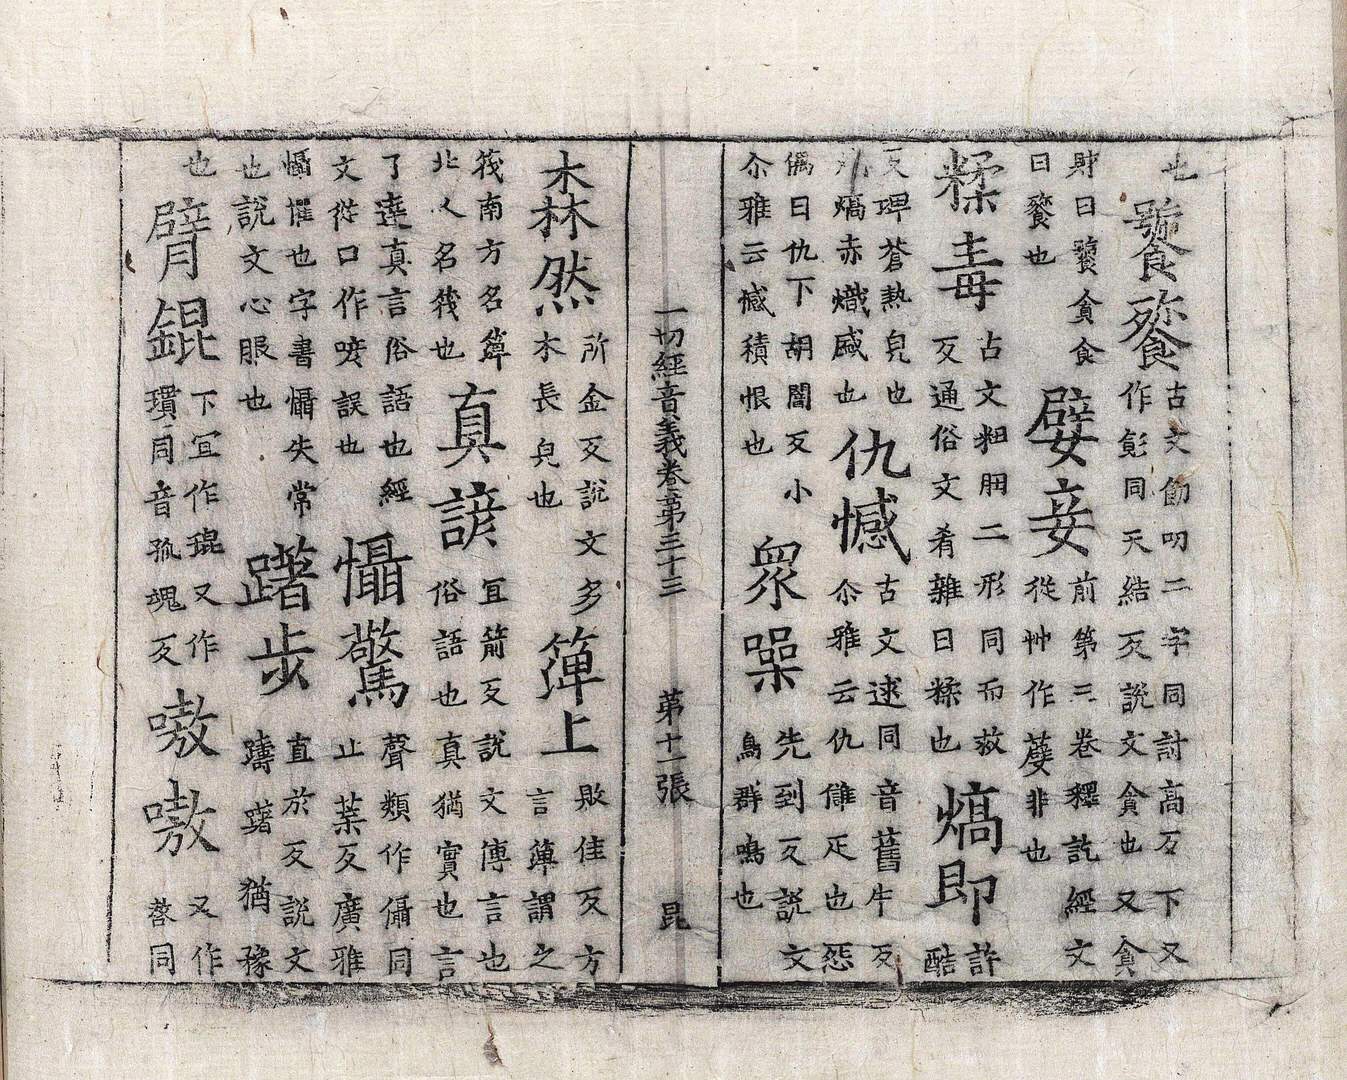 也饕餮古文飻叨二字同討高反下又
作㱃同天結反說文貪也又貪
財曰饕貪食
曰餮也
嬖妾前第三卷釋訖經文
從艸作非也
糅毒古文粈二形同而救
反通俗文肴雜曰糅也
熇即許
酷
反埤蒼熱皃也
熇赤熾盛也
仇憾古文逑同音舊牛反
尒雅云仇讎疋也怨
偶曰仇下胡闇反小
尒雅云憾積恨也
衆噪先到反說文
鳥群鳴也
一切經音義卷第三十三 第十一張 昆
森然所金反說文多
木長皃也
簰上敗佳反方
言簰謂之
筏南方名簰
北人名筏也
真諺冝箭反說文傳言也
俗語也真猶實也言
了達真言俗語也經
文從口作喭誤也
懾驚聲類作㒤同
止葉反廣雅
懾懼也字書懾失常
也說文心服也
躇步直於反說文
躊躇猶豫
也臂錕下冝作琨又作
瓊同音孤魂反
嗷嗷又作
同